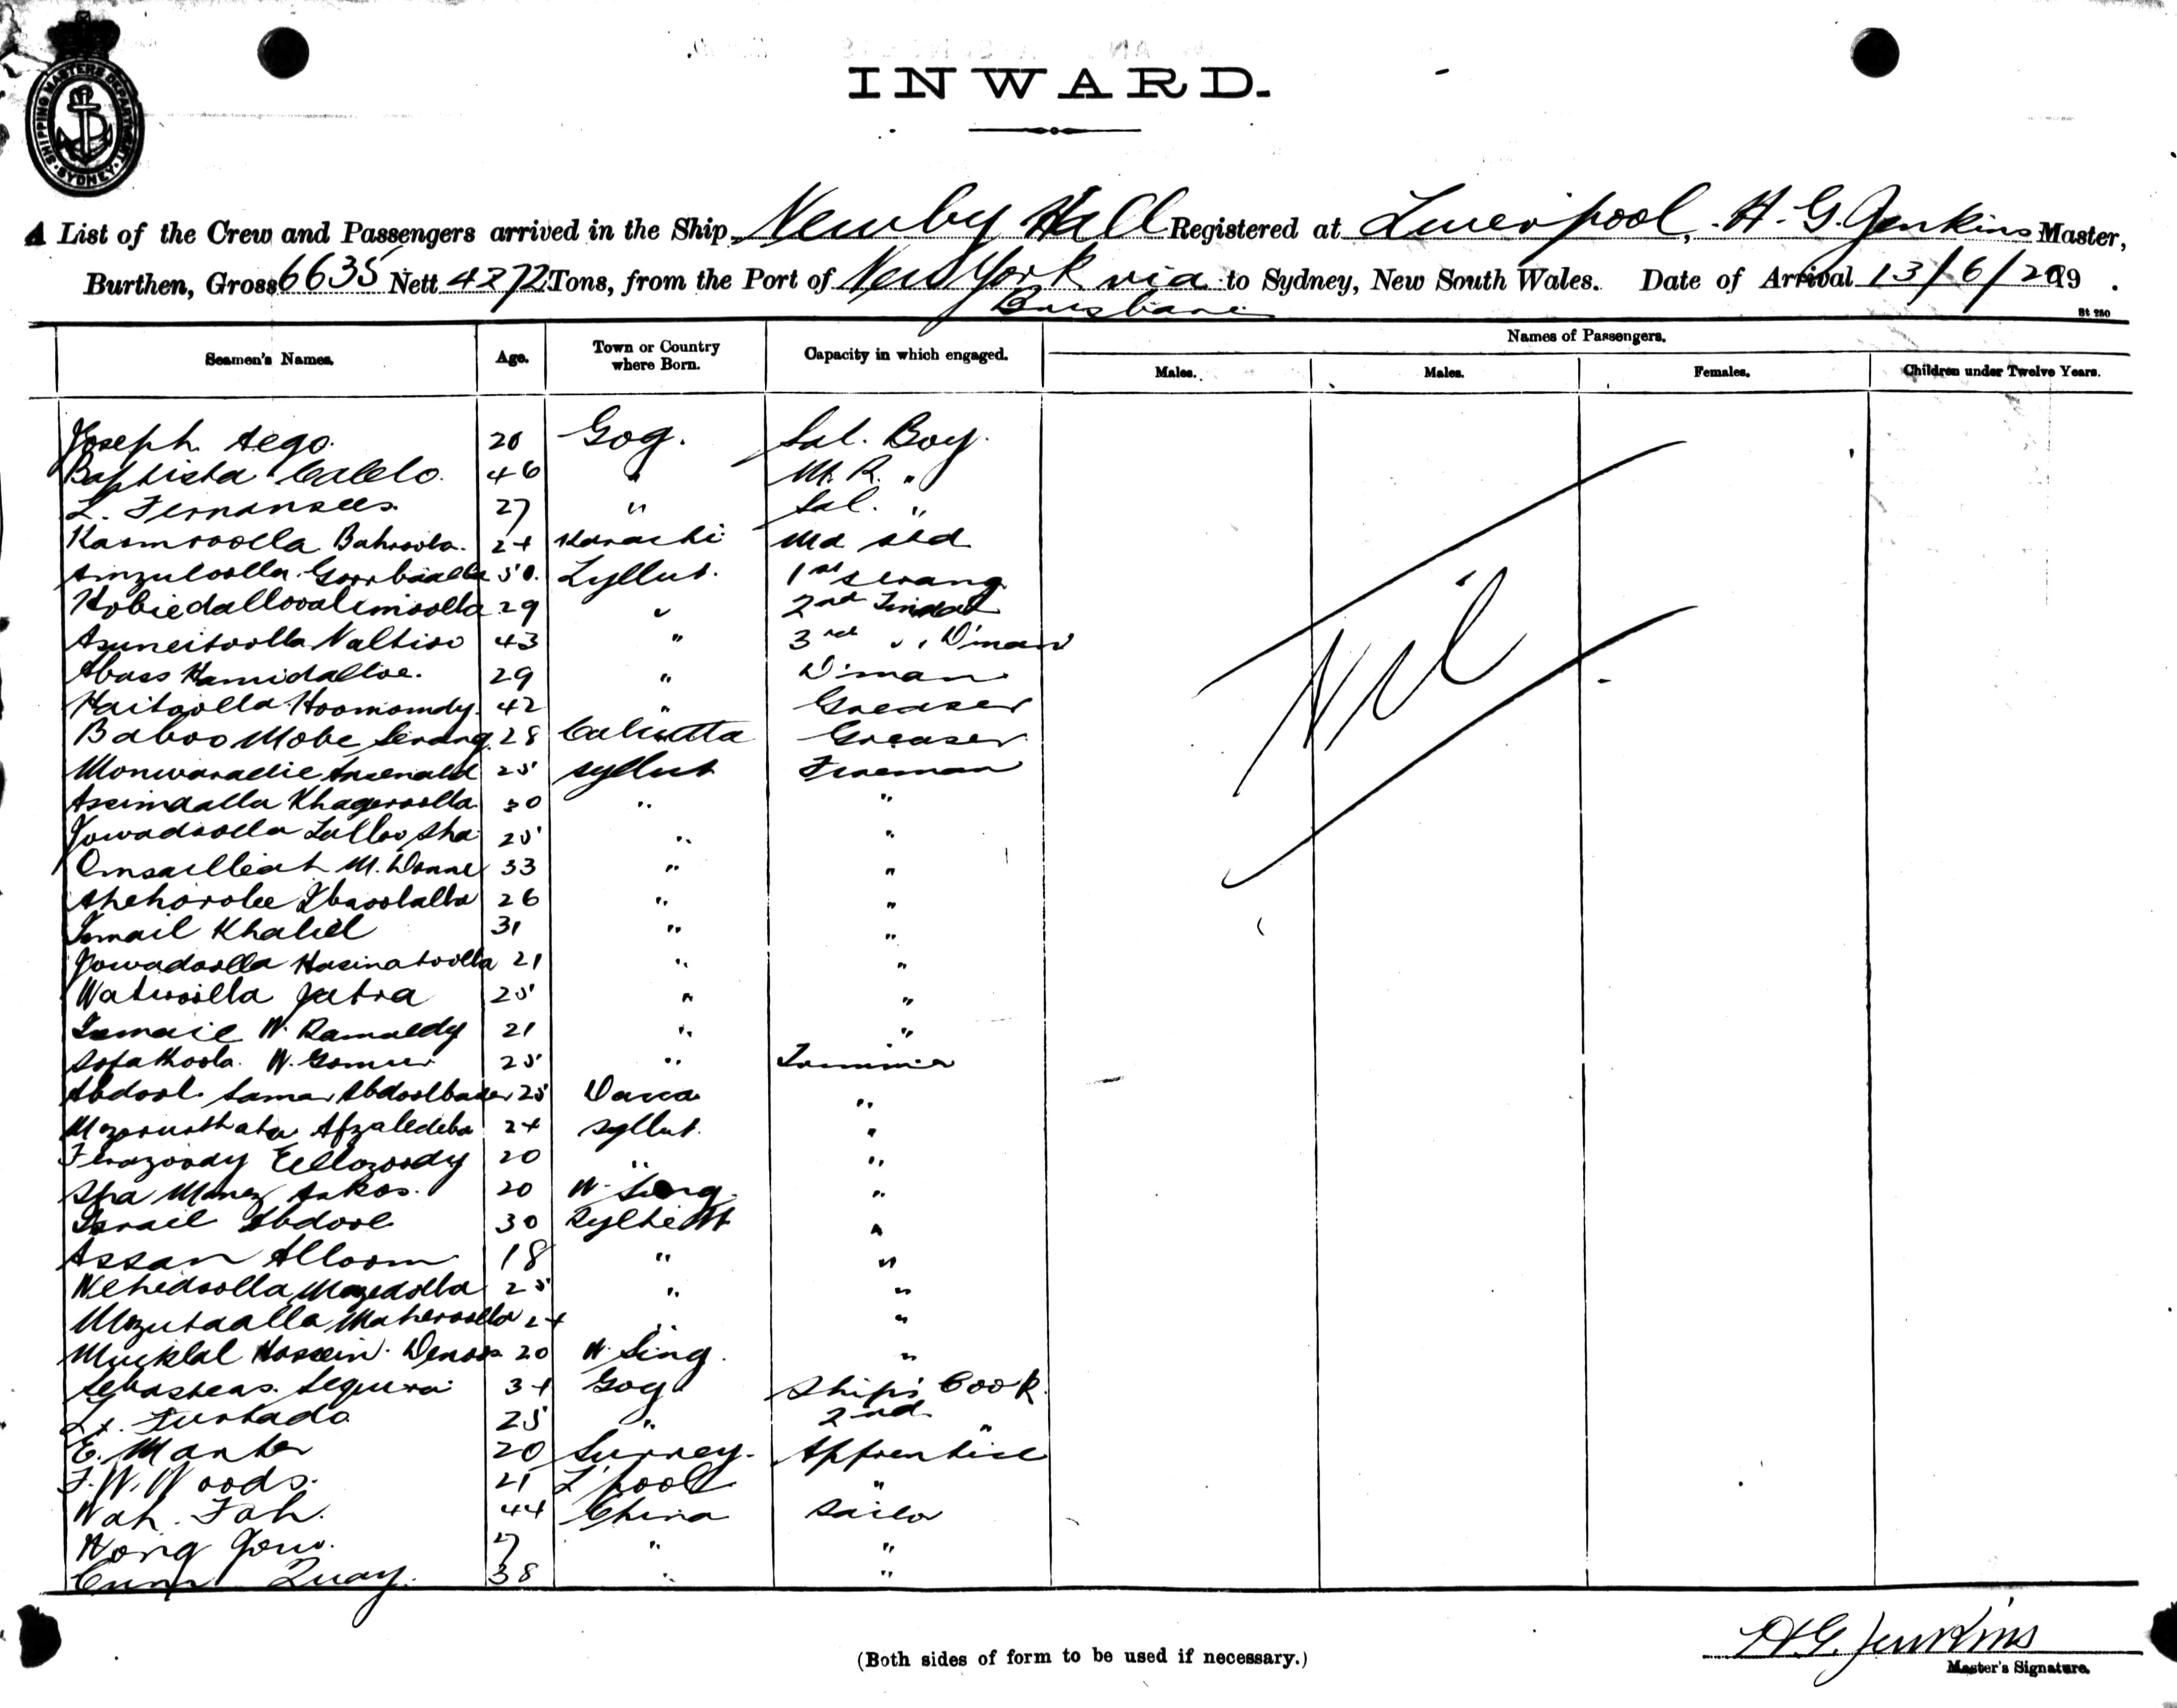 SHIPPING MASTERS DEPARTMENT SYDNEY
INWARD.
A List of the Crew and Passengers arrived in the Ship Newby Hall Registered at Liverpool, H. G. Jenkins Master,
Burthen, Gross 6635 Nett 4272 Tons, from the Port of New York via Brisbane to Sydney, New South Wales. Date of Arrival 13/6/20 19 .
St 280
Seamen's Names. Age. Town or Country where Born. Capacity in which engaged. Names of Passengers.
Males. Males. Females. Children under Twelve Years.
Joseph Aego. 20 Gog. Sal. Boy.
Baptista 46 " M. R. "
L. Fernansees. 27 " Sal. "
Kasmroolla Bahroola. 24 Karachi
Amzuloolla 50. Syllut. 1st Serang
29 " 2nd Tindal
Asuneitoolla Naltiso 43 " 3rd " D'man
Abass Hamidalloe. 29 " D'man
Haitoolla Hoomomdy. 42 " Greaser
Baboo Mobe Serang. 28 Calcutta Greaser
Monwaradie 25 Syllut Fireman
Assimdalla Khageroolla 30 " "
Jowadoolla Lalloo Sha 25 " "
M. Donne 33 " "
26 " "
Ismail Khalil 31 " "
Jowadoolla Hasinatoolla 21 " "
Watwoolla Jatra 25 " "
Ismail W. Ramaldy 21 " "
W. Gomur 25 " Trimmer
Abdool Samar Abdoolbaker 25 Dacca "
Afzaledeba 24 Syllut. "
Ferozoody Eellozoody 20 " "
Sha Monez Askos. 20 N. Sing. "
Israil Abdool 30 Sylhett "
Assan Alloom 18 " "
Wehedoolla Mozedolla 25 " "
Mozutaalla Maheroolla 24 " "
Mucklal Hossein Denoss 20 N. Sing. "
Sebasteas. Sequera 34 Gog Ship's Cook.
Furtado 25 " 2nd "
E. Manter 20 Surrey. Apprentice
F. W. Woods. 21 L'pool "
Wah Fah. 44 China Sailor
Wong Gow. 27 " "
Quay. 38 " "
Nil
(Both sides of form to be used if necessary.)
H G. Jenkins
Master's Signature.